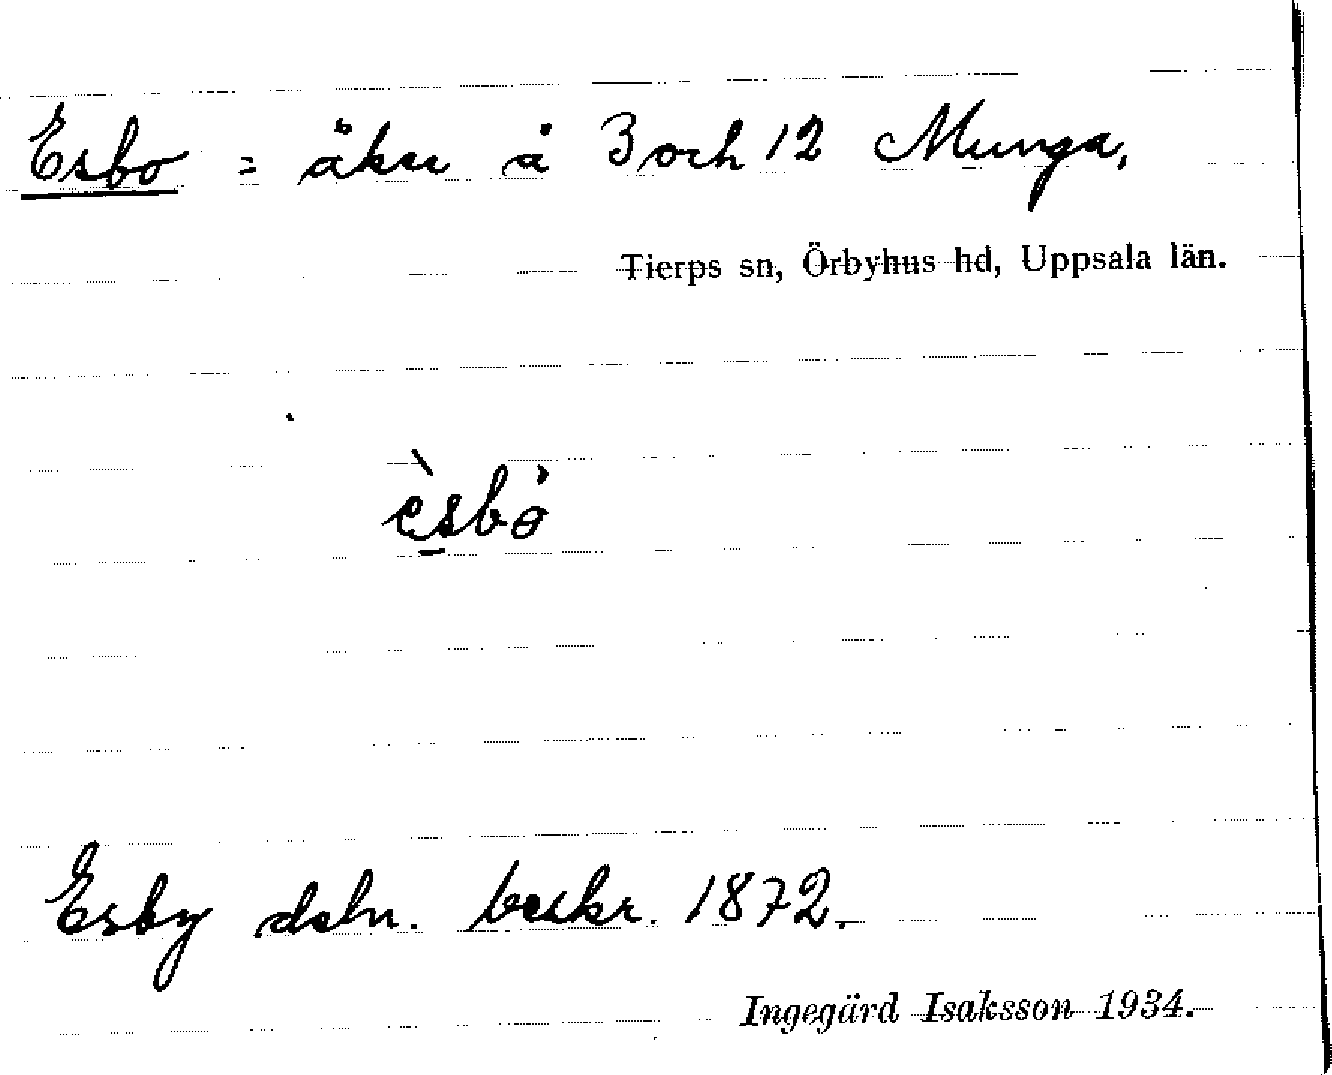 Esbo = åker å 3 och 12 Munga,
Tierps sn, Örbyhus hd, Uppsala län.
èsbò
Esby dsln. beskr. 1872.
Ingegärd Isaksson 1934.